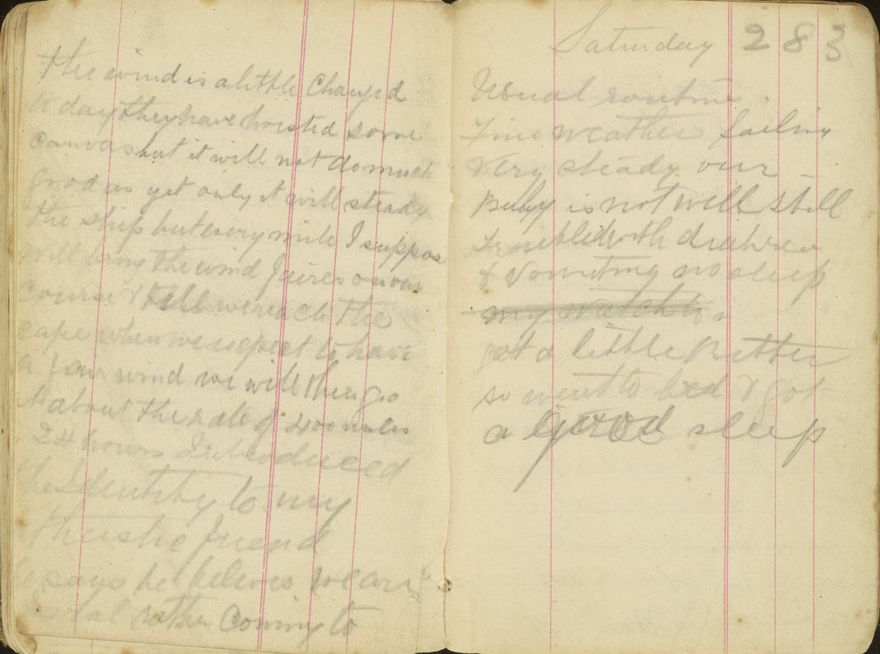 the wind is a little Changed
to day they have hoisted some
canvas but it will not do much
good as yet only it will steady
the ship but every mile I suppos
will bring the wind fairer on our
course & till we reach the
cape when we expect to have
a fair wind we will then go
at about the rate of 400 miles
24 hours Introduced
to my
friend
says he believes
rather Coming to
Saturday 283
Usual routine
Fine weather
Very steady
Baby is not well still
troubled with
& Vomiting no sleep
my watch
got a little Better
so went to bed & got
a good sleep